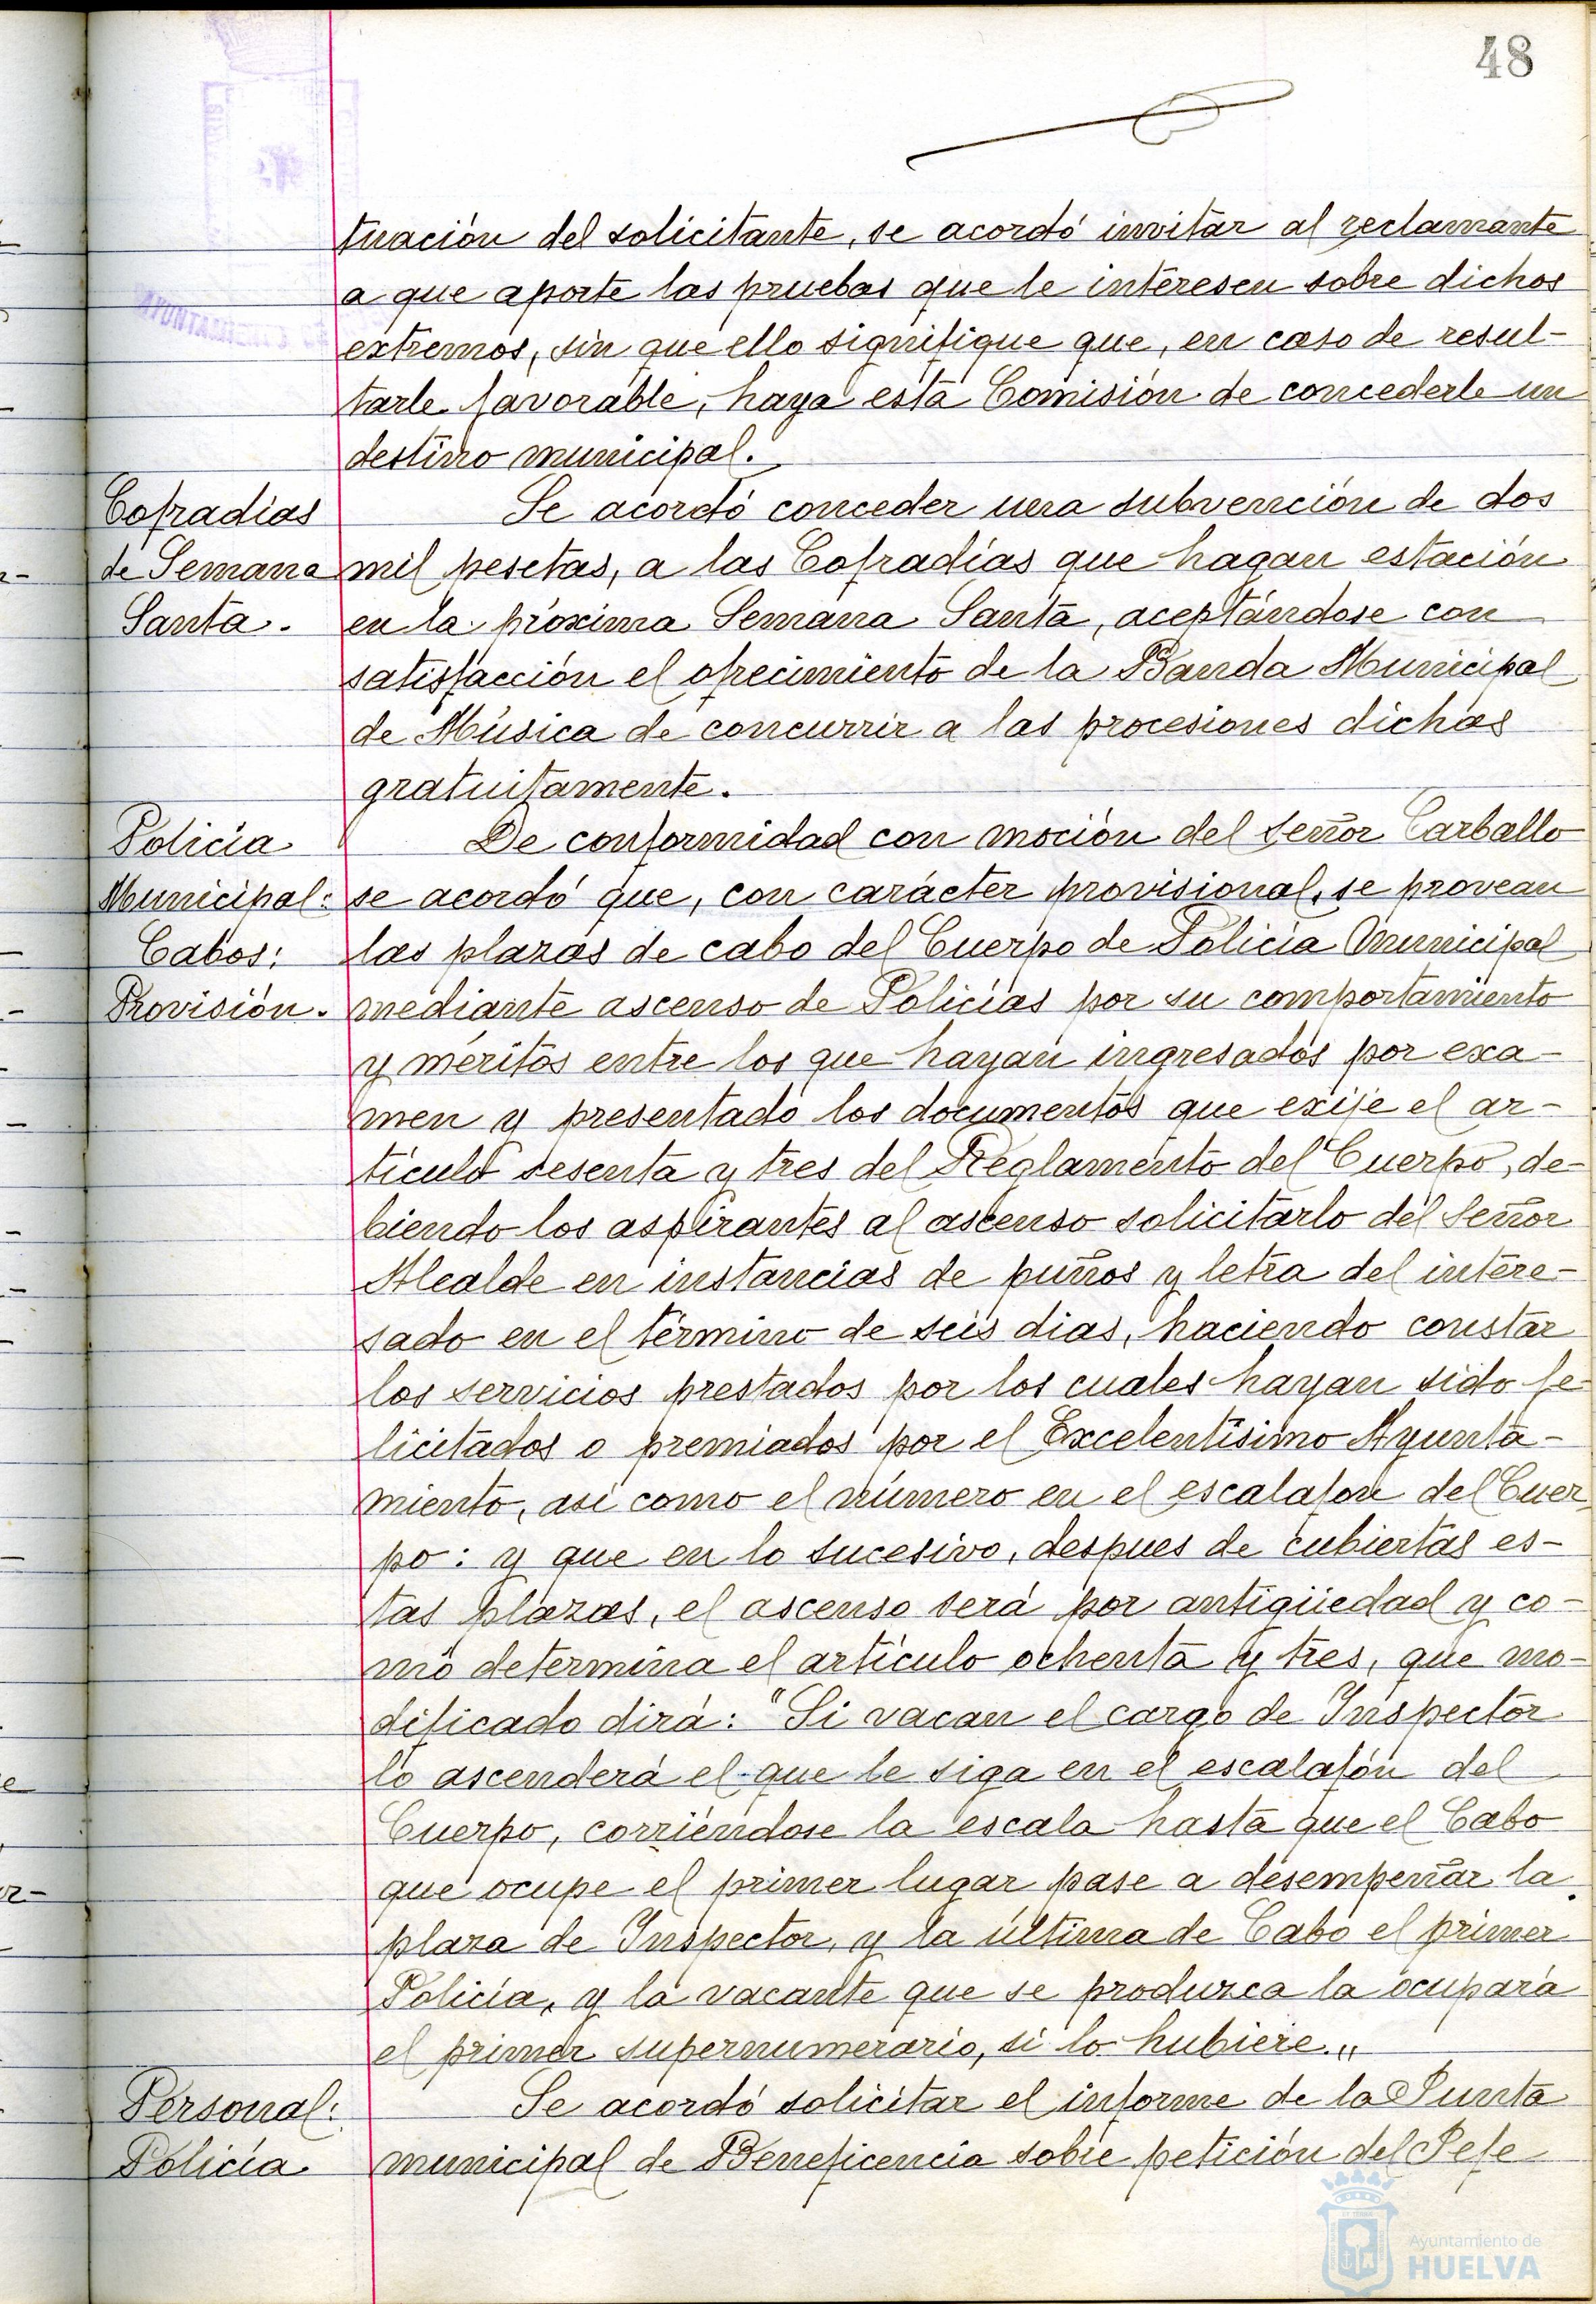 48
tuación del solicitante, se acordó invitar al reclamante
a que aporte las pruebas que le interesen sobre dichos
extremos, sin que ello signifique que, en caso de resul-
tarle favorable, haya esta Comisión de concederle un
destino municipal.
Cofradias
de Semana
Santa.
Se acordó conceder una subvención de dos
mil pesetas, a las Cofradías que hagan estación
en la próxima Semana Santa, aceptándose con
satisfacción el ofrecimiento de la Banda Municipal
de Música de concurrir a las procesiones dichas
gratuitamente.
Policía
Municipal:
Cabos:
Provisión.
De conformidad con moción del señor Carballo
se acordó que, con carácter provisional, se provean
las plazas de cabo del Cuerpo de Policía Municipal
mediante ascenso de Policías por su comportamiento
y méritos entre los que hayan ingresados por exa-
men y presentado los documentos que exije el ar-
tículo sesenta y tres del Reglamento del Cuerpo, de-
biendo los aspirantes al ascenso solicitarlo del Señor
Alcalde en instancias de puños y letra del intere-
sado en el término de seis dias, haciendo constar
los servicios prestados por los cuales hayan sido fe-
licitados o premiados por el Excelentísimo Ayunta-
miento, así como el número en el escalafon del Cuer
po: y que en lo sucesivo, despues de cubiertas es-
tas plazas, el ascenso será por antigüedad y co-
mo determina el artículo ochenta y tres, que mo-
dificado dirá: "Si vacan el cargo de Inspector
lo ascenderá el que le siga en el escalafón del
Cuerpo, corriéndose la escala hasta que el Cabo
que ocupe el primer lugar pase a desempeñar la
plaza de Inspector, y la última de Cabo el primer
Policía, y la vacante que se produzca la ocupará
el primer supernumerario, si lo hubiere."
Personal:
Policía
Se acordó solicitar el informe de la Junta
municipal de Beneficencia sobre petición del Jefe
AYUNTAMIENTO DE
Ayuntamiento de
HUELVA